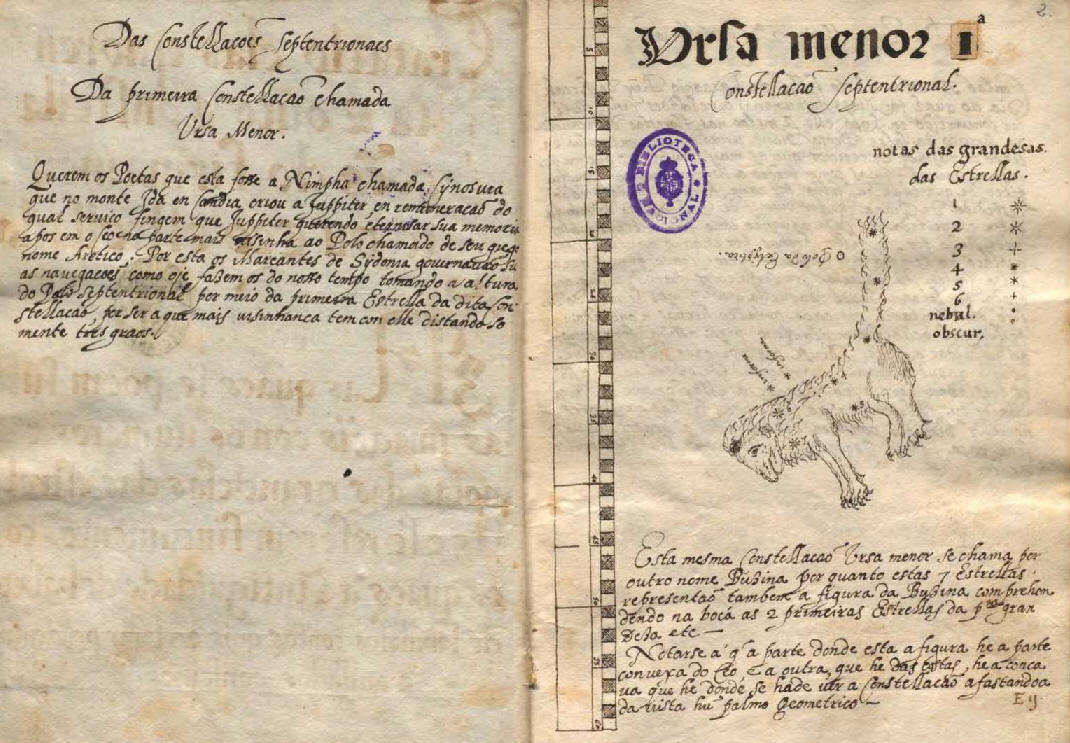 Das Constellacoẽs Septentrionaes
Da primeira Constellacaõ chamada
Ursa Menor.
Querem os Poetas que esta fosse a Nimpha chamada, Synosura
que no monte Ida en Candia criou a Juppiter, en remuneracaõ do
qual servico fingem que Juppiter querendo eternisar sua memoria
a pos em o Ceo na parte mais visinha ao Polo chamado de seu
nome Airtico. Por esta os Mareantes de Sydonia governavaõ su
as navegacoes como oje fazem os do nosso tempo tomando a altura
do Polo Septentrional por meio da primeira Estrella da dita Con
stellacaõ, por ser a que mais visinhanca tem con elle distando so
mente tres graos.
2.
Ursa menor 1ª
Constellacaõ Septentrional.
notas das grandesas.
das Estrellas.
1
2
3
4
5
6
nebul.
obscur.
BIBLIOTECA
Polo da Eclyptica.
inform
inform
Esta mesma Constellacaõ Ursa menor se chama por
outro nome Buzina por quanto estas 7 Estrellas
representaõ tambem a figura da Buzina comprehen
dendo na boca as 2 primeiras Estrellas da pra gran
desa etc
Notarse á q̃ a parte donde esta a figura he a parte
convexa do Ceo e a outra, que he das costas, he a conca
va que he donde se hade ver a Constellacaõ afastandoa
da vista hũ palmo Geometrico
E ij